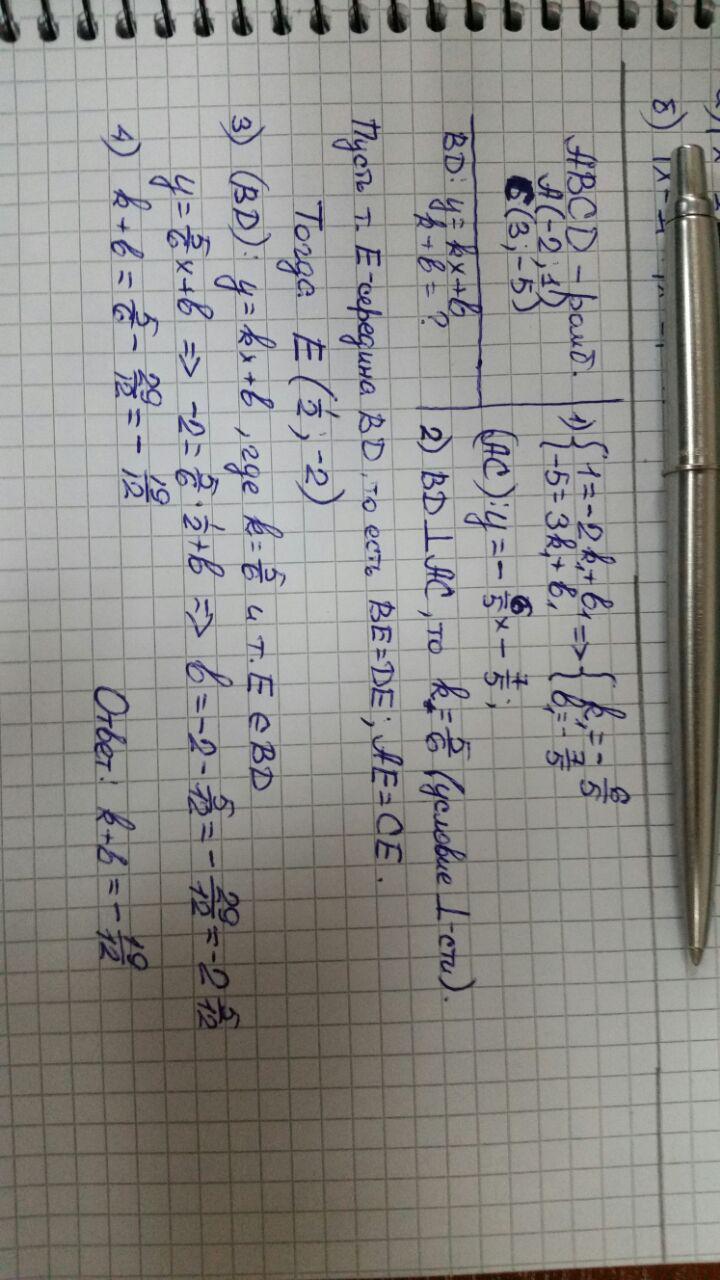 б)
ABCD - ромб.
A(-2; 1)
C(3; -5)
BD: y = kx+b
k+b = ?
1) { 1 = -2k₁ + b₁ => { k₁ = -6/5
{ -5 = 3k₁ + b₁ { b₁ = -7/5
(AC): y = -6/5 x - 7/5;
2) BD ⊥ AC, то k = 5/6 (условие ⊥-сти).
Пусть т. E - середина BD, то есть BE = DE; AE = CE.
Тогда E (1/2; -2)
3) (BD): y = kx+b, где k = 5/6 и т. E ∈ BD
y = 5/6 x + b => -2 = 5/6 · 1/2 + b => b = -2 - 5/12 = -29/12 = -2 5/12
4) k+b = 5/6 - 29/12 = -19/12
Ответ: k+b = -19/12